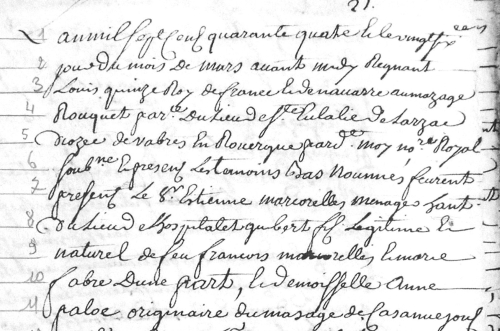 21.
1 an mil sept cens quarante quatre et le vingt six
2 jour du mois de mars avant midy Regnant
3 Louis quinze Roy de france et de navarre au mazage
4 Rouquet par.e du Lieu de S.te Eulalie de Larzac
5 dioze de vabres En Rouergue pard.t moy no.re Royal
6 soub.ne Et presens Les temoins bas nommés feurent
7 presens Le S.r Estienne marcorelles menager hant
8 du Lieu d hospitalet gubert fils Legitime Et
9 naturel de feu francois marcorelles Et marie
10 fabre Dune part, Et demoiselle Anne
11 paloc originaire du masage de Casanuejouls